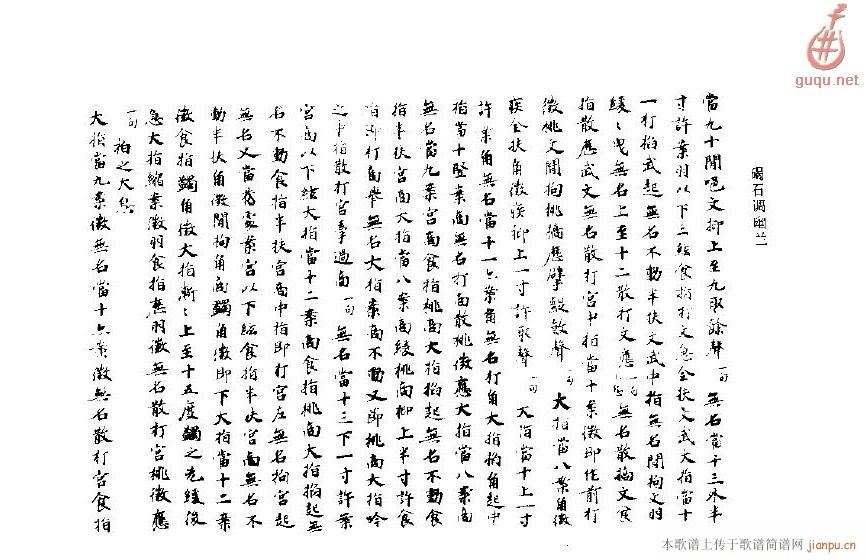 碣石调幽兰
當九十間咽文抑上至九取餘聲一句 無名當十三外半
寸許案羽以下三絃食指打文急全扶文武大指當十
一打掐武起無名不動半扶文武中指無名間拘文羽
緩緩起無名上至十二散打文應一句無名散摘文食
指散應武文無名散打宮中指當十案徵即作前打
徵挑文間拘挑摘應擘毀敘聲一句 大指當八案角徵
疾全扶角徵疾抑上一寸許取聲一句 大指當十上一寸
許案角無名當十一案角無名打角大指掐角起中
指當十案商無名打商散挑徵應大指當八案商
無名當九案宮商食指挑商大指掐起無名不動食
指半扶宮商大指當八案商緩挑商抑上半寸許食
指即打商無名大指案商不動又即挑商大指吟
之中指散打宮過商一句 無名當十三下一寸許案
宮商以下絃大指當十二案商食指挑商大指掐起無
名不動食指半扶宮商中指即打宮左無名拘宮起
無名又當舊處案宮以下絃食指半扶宮商無名不
動半扶角徵間拘角商蠲角徵即下大指當十二案
徵食指蠲角徵大指漸漸上至十五度蠲之先緩後
急大指縮案徵羽食指應羽徵無名散打宮挑徵應
一句 拍之大息
大指當九案徵無名當十案徵無名散打宮食指
guqu.net
本歌谱上传于歌谱简谱网 jianpu.cn